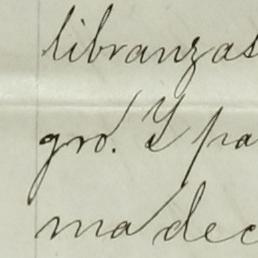 libranzas
gro. Y pa
ma dec